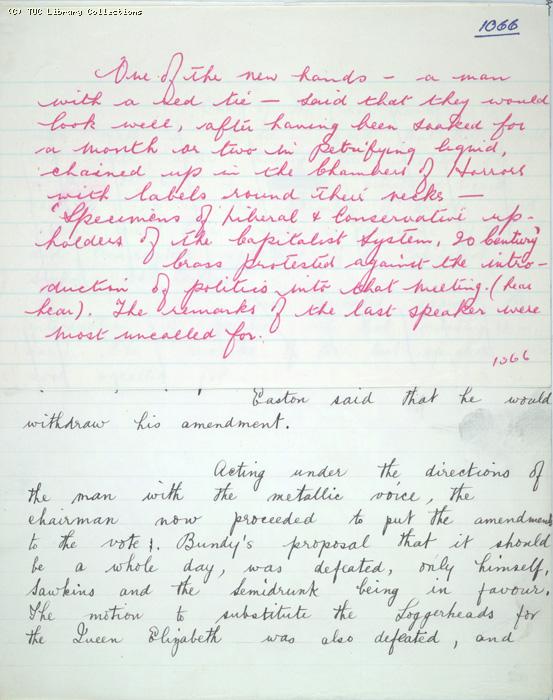 (C) TUC Library Collections
1066
One of the new hands - a man
with a red tie - said that they would
look well, after having been soaked for
a month or two in petrifying liquid,
chained up in the Chamber of Horrors
with labels round their necks -
"Specimens of Liberal & Conservative up-
holders of the Capitalist System, 20 Century"
Crass protested against the intro-
duction of politics into that meeting. (hear
hear). The remarks of the last speaker were
most uncalled for.
1066
Easton said that he would
withdraw his amendment.
Acting under the directions of
the man with the metallic voice, the
chairman now proceeded to put the amendment
to the vote. Bundy's proposal that it should
be a whole day, was defeated, only himself,
Sawkins and the Semidrunk being in favour.
The motion to substitute the Loggerheads for
the Queen Elizabeth was also defeated, and